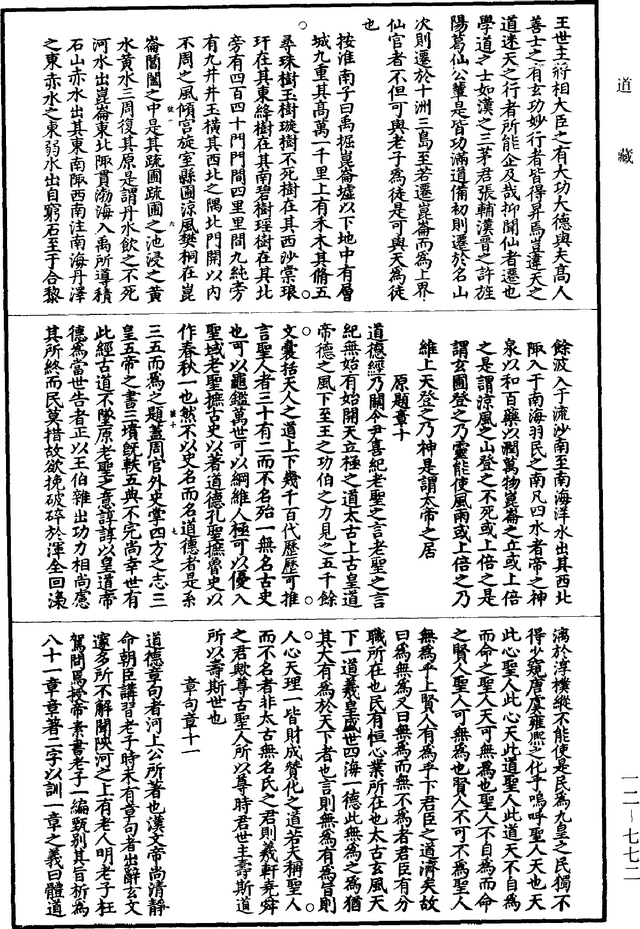 道藏
王世主將相大臣之有大功大德與夫高人
善士之有玄功妙行者皆得昇焉豈違天之
道迷天之行者所能企及哉抑聞仙者遷也
學道之士如漢之三茅君張輔漢晉之許旌
陽葛仙公輩是皆功滿道備初則遷於名山
次則遷於十洲三島至若遷崑崙而為上界
仙官者不但可與老子為徒是可與天為徒
也
按淮南子曰禹掘崑崙墟以下地中有層
城九重其高萬一千里上有禾木其脩五
尋珠樹玉樹璇樹不死樹在其西沙棠琅
玕在其東絳樹在其南碧樹瑶樹在其北
旁有四百四十門門間四里里間九純旁
有九井井玉橫其西北之隅北門開以內
不周之風傾宮旋室縣圃涼風樊桐在崑
崙閶闔之中是其疏圃疏圃之池浸之黃
水黃水三周復其原是謂丹水飲之不死
河水出崑崙東北陬貫渤海入禹所導積
石山赤水出其東南陬西南注南海丹澤
之東赤水之東弱水出自窮石至于合黎
餘波入于流沙南至南海洋水出其西北
陬入于南海羽民之南凡四水者帝之神
泉以和百藥以潤萬物崑崙之立或上倍
之是謂涼風之山登之不死或上倍之是
謂玄圃登之乃靈能使風雨或上倍之乃
維上天登之乃神是謂太帝之居
原題章十
道德經乃關令尹喜紀老聖之言老聖之言
紀無始有始開天立極之道太古上古皇道
帝德之風下至王之功伯之力見之五千餘
文囊括天人之道上下幾千百代歷歷可推
言聖人者三十有二而不名殆一無名古史
也可以龜鑑萬世可以綱維人極可以優入
聖域老聖摭古史以著道德孔聖摭魯史以
作春秋一也然不以史名而名道德者是系
三五而為之題蓋周官外史掌四方之志三
皇五帝之書三墳既軼五典不完尚幸世有
此經古道不墜原老聖之意諄諄以皇道帝
德為當世告者正以王伯雜出功力相尚慮
其所終而民莫措故欲挽破碎於渾全回澆
漓於淳樸縱不能使是民為九皇之民獨不
得少窺唐虞雍熙之化乎嗚呼聖人天也天
此心聖人此心天此道聖人此道天不自為
而命之聖人天可無為也聖人不自為而命
之賢人聖人可無為也賢人不可不為聖人
無為乎上賢人有為乎下君臣之道濟矣故
曰為無為又曰無為而無不為者君臣有分
職所在也民有恒心業所在也太古玄風天
下一道羲皇盛世四海一德此無為之為猶
其大有為於天下者也言則無為有為旨則
人心天理一皆財成贊化之道若夫稱聖人
而不名者非太古無名氏之君則羲軒堯舜
之君歟尊古聖人所以尊時君世主壽斯道
所以壽斯世也
章句章十一
道德章句者河上公所著也漢文帝尚清靜
命朝臣講習老子時未有章句者出辭玄文
邃多所不解聞陝河之上有老人明老子枉
駕問焉授帝素書老子一編甄別其旨析為
八十一章章著二字以訓一章之義曰體道
一二－七七二